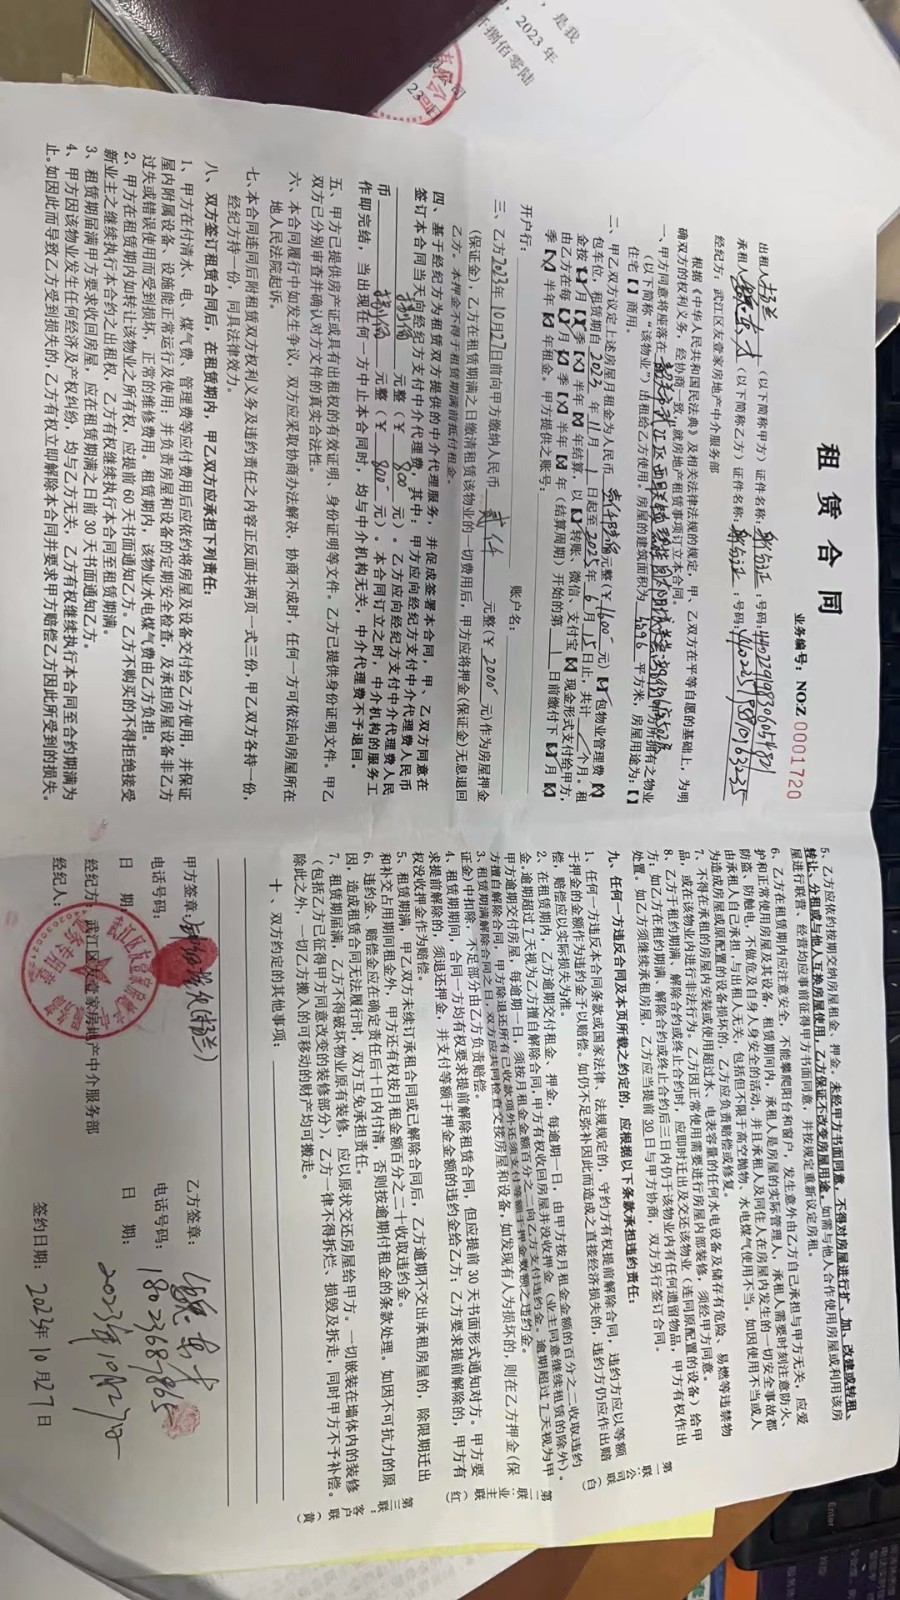 是我
，2023 年
仟捌佰零陆
租 赁 合 同
业务编号：NO:Z 0001720
出租人：杨兰（以下简称甲方）证件名称：身份证：号码：
承租人：（以下简称乙方）证件名称：身份证：号码：
经纪方：武江区友壹家房地产中介服务部
根据《中华人民共和国民法典》及相关法律法规的规定，甲、乙双方在平等自愿的基础上，为明
确双方的权利义务，经协商一致，就房地产租赁事项订立本合同。
一、甲方同意将座落在韶关市武江区西联镇
（以下简称“该物业”）出租给乙方使用。房屋的建筑面积为 平方米，房屋用途为：【】
住宅【】商用。
二、甲乙双方议定上述房屋月租金为人民币 元整（￥ 元）包物业管理费
包车位，租赁期自 2023 年 11 月 1 日起至 2025 年 6 月 15 日止，共计 个月。租
金按 月 季 半年 年结算，以 转账、微信、支付宝 现金形式支付给甲方，
由乙方在每 月 季 半年 年（结算周期）开始的第 1 日前缴付下 月
季 半年 年租金。甲方提供之账号：
开户行： 账户名：
三、乙方2023年10月27日前向甲方缴纳人民币 贰仟 元整（￥ 2000 元）作为房屋押金
（保证金），乙方在租赁期满之日缴清租赁该物业的一切费用后，甲方应将押金（保证金）无息退回
乙方。本押金不得于租赁期满前抵付租金。
四、基于经纪方为租赁双方提供的中介代理服务，并促成签署本合同，甲、乙双方同意在
签订本合同当天向经纪方支付中介代理费，其中：甲方应向经纪方支付中介代理费人民币
捌佰 元整（￥ 800 元）。乙方应向经纪方支付中介代理费人民
币 捌佰 元整（￥ 800 元）。本合同订立之时，中介机构的服务工
作即完结，当出现任何一方中止本合同时，均与中介机构无关，中介代理费不予退回。
五、甲方已提供房产证或具有出租权的有效证明、身份证明等文件。乙方已提供身份证明文件。甲乙
双方已分别审查并确认对方文件的真实合法性。
六、本合同履行中如发生争议，双方应采取协商办法解决，协商不成时，任何一方可依法向房屋所在
地人民法院起诉。
七、本合同连同后附租赁双方权利义务及违约责任之内容正反面共两页一式三份，甲乙双方各持一份，
经纪方持一份，同具法律效力。
八、双方签订租赁合同后，在租赁期内，甲乙双方应承担下列责任：
1、甲方在付清水、电、煤气费、管理费等应付费用后应依约将房屋及设备交付给乙方使用，并保证
屋内附属设备、设施能正常运行及使用；并负责房屋和设备的定期安全检查，及承担房屋设备非乙方
过失或错误使用而受到损坏，正常的维修费用。租赁期内，该物业水电煤气费由乙方负担。
2、甲方在租赁期内如转让该物业之所有权，应提前 60 天书面通知乙方。乙方不购买的不得拒绝接受
新业主之继续执行本合约之出租权，乙方有权继续执行本合同至租赁期满。
3、租赁期届满甲方要求收回房屋，应在租赁期满之日前 30 天书面通知乙方。
4、甲方因该物业发生任何经济及产权纠纷，均与乙方无关，乙方有权继续执行本合同至合约期满为
止。如因此而导致乙方受到损失的，乙方有权立即解除本合同并要求甲方赔偿乙方因此所受到的损失。
5、乙方应依约按期交纳房屋租金、押金。未经甲方书面同意，不得对房屋进行扩、加、改建或转租、
转让、分租或与他人互换房屋使用，乙方保证不改变房屋用途。如需与他人合作使用房屋或利用该房
屋进行联营、经营均应事前征得甲方书面同意，并按规定重新议定房租。
6、乙方在租赁期内应注意安全，不能攀爬阳台和窗户，发生意外由乙方自己承担与甲方无关，应爱
护和正常使用房屋及其设备，租赁期间内，承租人是房屋的实际管理人，承租人需要时刻注意防火、
防盗、防触电，不做危及自身人身安全的活动。并且承租人及同住人在房屋内发生的一切安全事故都
由承租人自己承担，与出租人无关，包括但不限于高空抛物，水电煤气使用不当。如因使用不当或人
为造成房屋或原配置的设备损坏的，乙方应负责赔偿或修复。
7、不得在承租的房屋内安装或使用超过水、电表容量的任何水电设备及储存有危险、易燃等违禁物
品，或在该物业内进行非法行为。乙方因正常使用需要进行房屋内部装修，须经甲方同意。
8、乙方于租约期满、解除合约或终止合约时，应即时迁出及交还该物业（连同原配置的设备）给甲
方；如乙方在租约期满、解除合约或终止合约后三日内仍于该物业内有任何遗留物品，甲方有权作出
处置。如乙方须继续承租房屋，乙方应当提前 30 日与甲方协商，双方另行签订合同。
九、任何一方违反合同及本页所载之约定的，应根据以下条款承担违约责任：
1、任何一方违反本合同条款或国家法律、法规规定的，守约方有权提前解除合同，违约方应以等额
于押金的金额作为违约金予以赔偿。如仍不足弥补因此而造成之直接经济损失的，违约方仍应作出赔
偿，赔偿应以实际损失为准。
2、在租赁期内，乙方逾期交付租金、押金，每逾期一日，由甲方按月租金金额的百分之二收取违约
金，逾期超过 7 天视为乙方擅自解除合同，甲方有权收回房屋并没收押金（业主同意继续租赁的除外）。
甲方逾期交付房屋，每逾期一日，须按月租金金额百分之二向乙方支付违约金。逾期超过 7 天视为甲
方擅自解除合同，甲方除退还所有已收款项外还须支付等额于押金数额之违约金。
3、租赁期满解除合同之日，双方应共同检查交接房屋和设备，如发现有人为损坏的，则在乙方押金（保
证金）中扣除，不足部分由乙方负责赔偿。
4、租赁期期间，合同一方均有权要求提前解除租赁合同，但应提前 30 天书面形式通知对方。甲方要
求提前解除的，须退还押金，并支付等额于押金金额的违约金给乙方；乙方要求提前解除的，甲方有
权没收押金作为赔偿。
5、租赁期满，甲乙双方未续订承租合同或已解除合同后，乙方逾期不交出承租房屋的，除限期迁出
和补交占用期间租金外，甲方还有权按月租金额百分之二十收取违约金。
6、违约金、赔偿金应在确定责任后十日内付清，否则按逾期付租金的条款处理。如因不可抗力的原
因，造成租赁合同无法履行时，双方互免承担责任。
7、租赁期届满，乙方不得破坏物业原有装修，应以原状交还房屋给甲方。一切嵌装在墙体内的装修
（包括乙方已征得甲方同意改变的装修部分），乙方一律不得拆烂、损毁及拆走，同时甲方不予补偿。
除此之外，一切乙方搬入的可移动的财产均可搬走。
十、双方约定的其他事项：
第一联：公司（白） 第二联：业主（红） 第三联：客户（黄）
甲方签章：（杨兰） 乙方签章：
电话号码： 电话号码：
日 期： 日 期：2023年10月27日
经纪方：武江区友壹家房地产中介服务部
经纪人： 签约日期：2023年10月27日
Enter